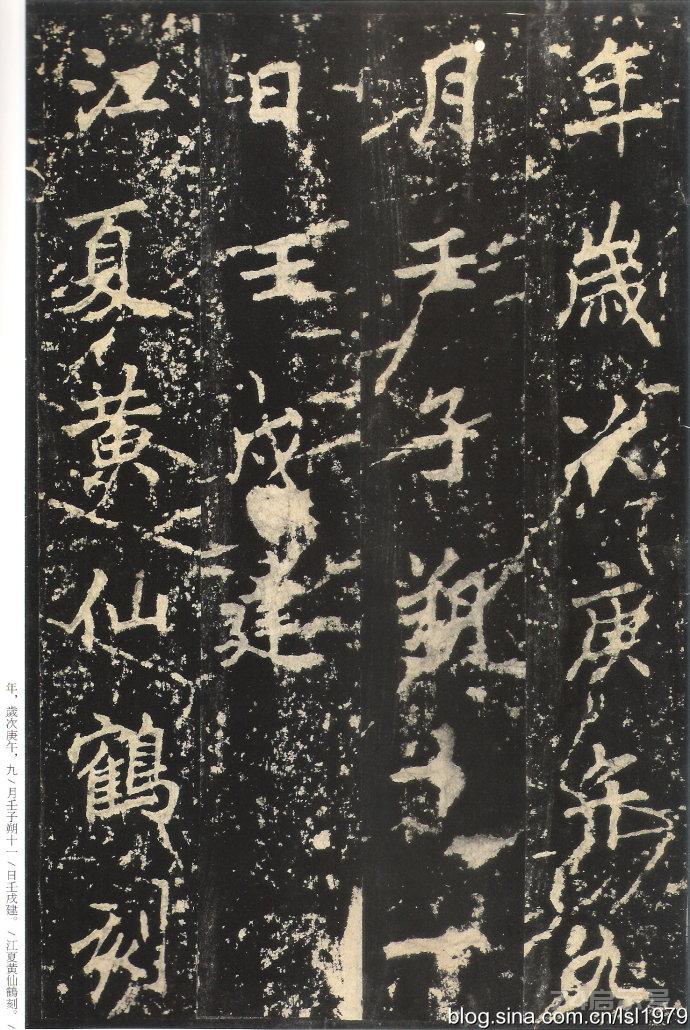 年歲次庚午九
月壬子朔十一
日壬戌建
江夏黄仙鶴刻
年，歲次庚午，九/月壬子朔十一/日壬戌建。/江夏黄仙鶴刻。/
blog.sina.com.cn/lsl1979